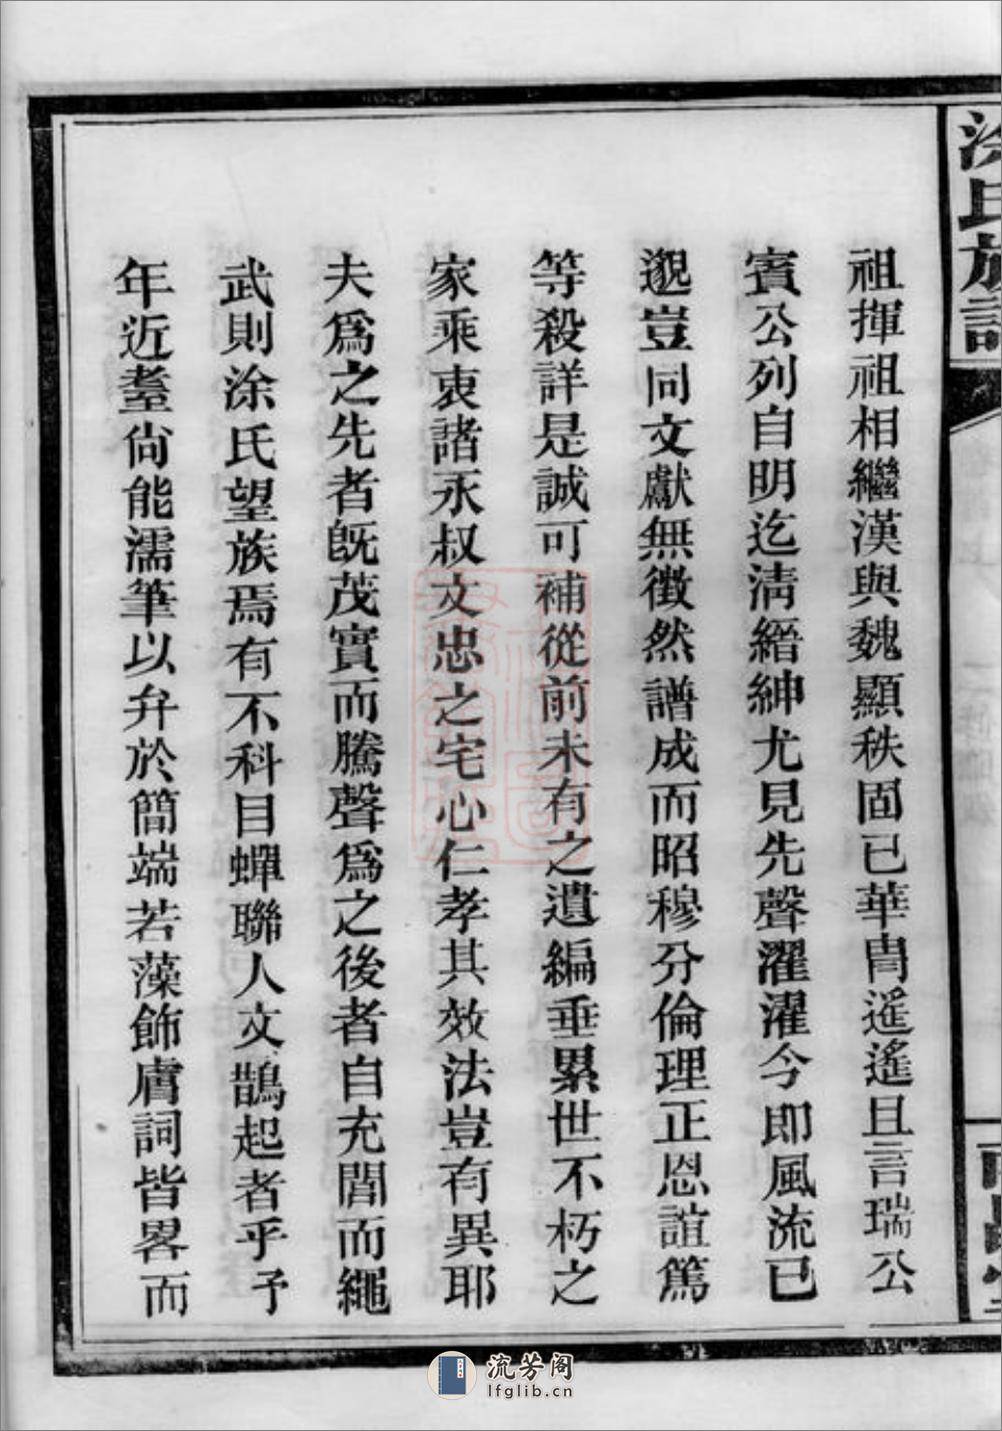 涂氏族譜
祖揮祖相繼漢與魏顯秩固已華胄遙遙且言瑞公
賓公列自明迄淸縉紳尤見先聲濯濯今即風流已
邈豈同文獻無徵然譜成而昭穆分倫理正恩誼篤
等殺詳是誠可補從前未有之遺編垂累世不朽之
家乘衷諸永叔文忠之宅心仁孝其效法豈有異耶
夫爲之先者旣茂實而騰聲爲之後者自充閭而繩
武則涂氏望族焉有不科目蟬聯人文鵲起者乎予
年近耋尙能濡筆以弁於簡端若藻飾膚詞皆畧而
流芳阁
lfglib.cn